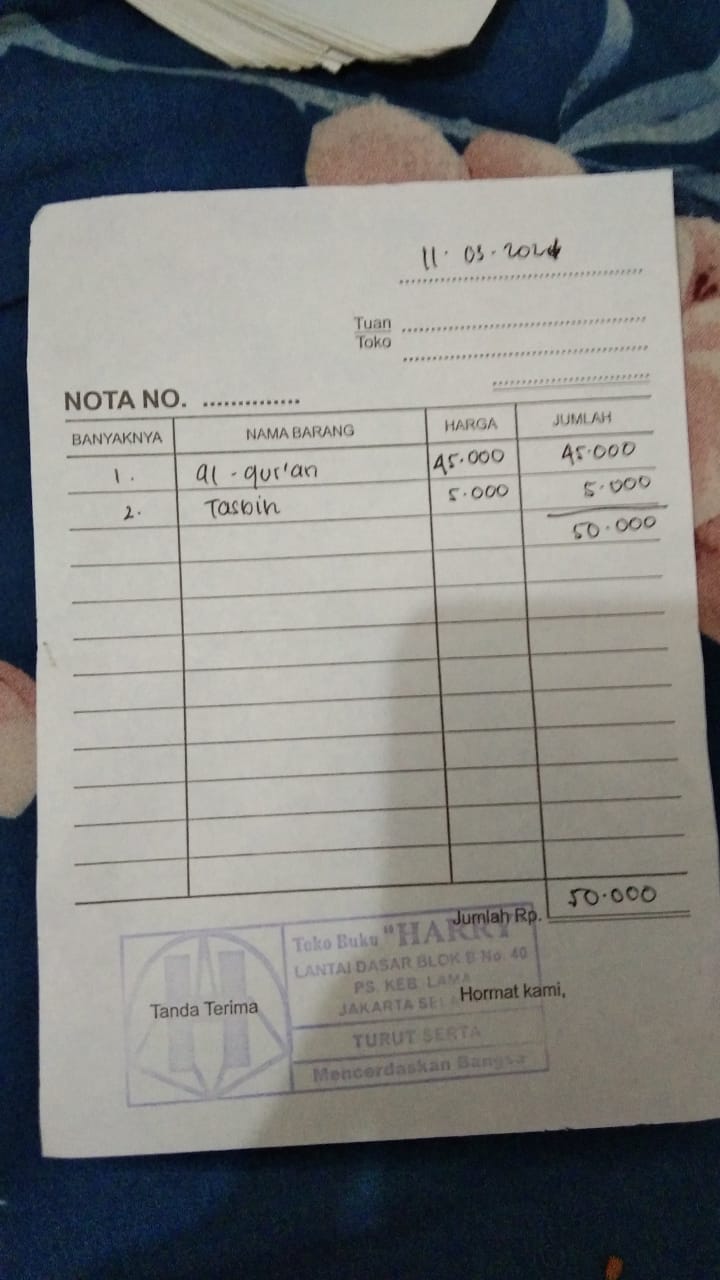 11. 03. 2024
Tuan
Toko
NOTA NO. ..............
BANYAKNYA NAMA BARANG HARGA JUMLAH
1. al-qur'an 45.000 45.000
2. Tasbih 5.000 5.000
50.000
Jumlah Rp. 50.000
Tanda Terima
Hormat kami,
Toko Buku "HARRY"
LANTAI DASAR BLOK B No. 40
PS. KEB. LAMA
JAKARTA
TURUT SERTA
Mencerdaskan Bangsa